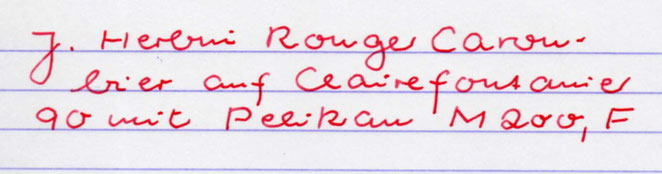 J. Herbin Rouge Carou-
bier auf Clairefontaine
90 mit Pelikan M200, F